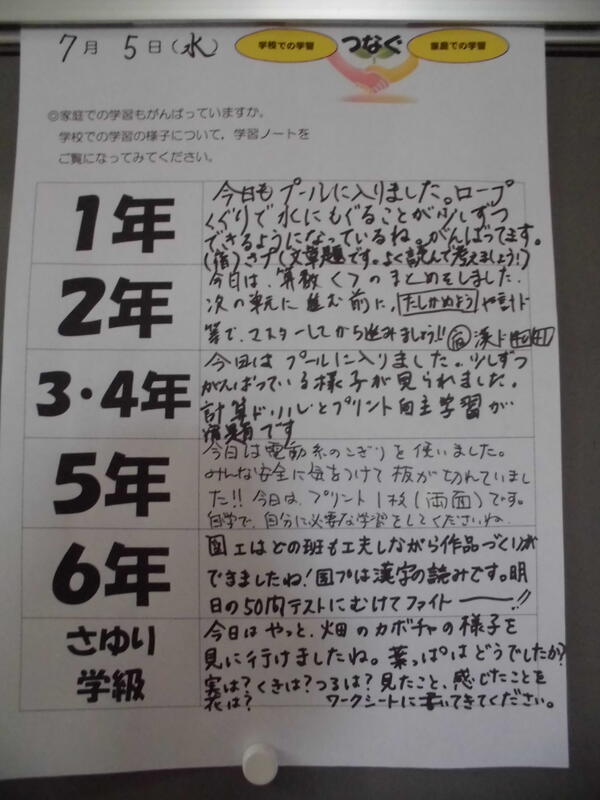 7月 5日(水)
学校での学習 つなぐ 家庭での学習
◎家庭での学習もがんばっていますか。
学校での学習の様子について、学習ノートを
ご覧になってみてください。
1年
今日もプールに入りました。ロープ
くぐりで水にもぐることが少しずつ
できるようになっているね。がんばってます。
(宿)さプ(文章題です。よく読んで考えましょう!)
2年
今日は、算数くつのまとめをしました。
次の単元に進む前に、たしかめようや計ド
等で、マスターしてから進みましょう!! 宿 漢ド
3・4年
今日はプールに入りました。少しずつ
がんばっている様子が見られました。
計算ドリルとプリント自主学習が
宿題です
5年
今日は電動糸のこぎりを使いました。
みんな安全に気をつけて板が切れていまし
た!!今日は、プリント1枚(両面)です。
自学で、自分に必要な学習をしてくださいね。
6年
図工はどの班も工夫しながら作品づくりが
できましたね!国プは漢字の読みです。明
日の50問テストにむけてファイトー!!
さゆり
学級
今日はやっと、畑のカボチャの様子を
見に行けましたね。葉っぱはどうでしたか?
実は?くきは?つるは?見たこと、感じたことを
花は? ワークシートに書いてきてください。